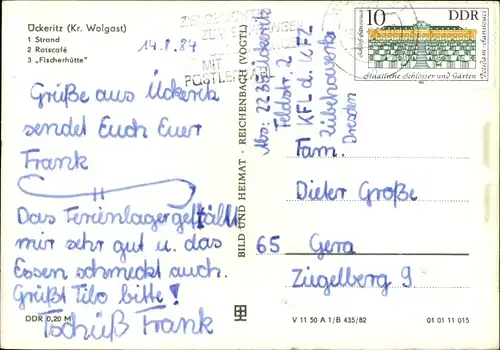 Ückeritz (Kr. Wolgast)
1 Strand
2 Ratscafé
3 „Fischerhütte"
14.8.84
MIT
POSTLEITZAHL
10 DDR
Staatliche Schlösser und Gärten
Grüße aus Ückeritz
sendet Euch Euer
Frank
Das Ferienlager gefällt
mir sehr gut u. das
Essen schmeckt auch.
Grüßt Tilo bitte!
Tschüß Frank
DDR 0,20 M
BILD UND HEIMAT · REICHENBACH (VOGTL)
Abs: 2238 Ückeritz
Feldstr. 2
KFL d. KFZ
Zubehörwerke
Dresden
Fam.
Dieter Große
65 Gera
Zügelberg 9
V 11 50 A 1/B 435/82 01 01 11 015